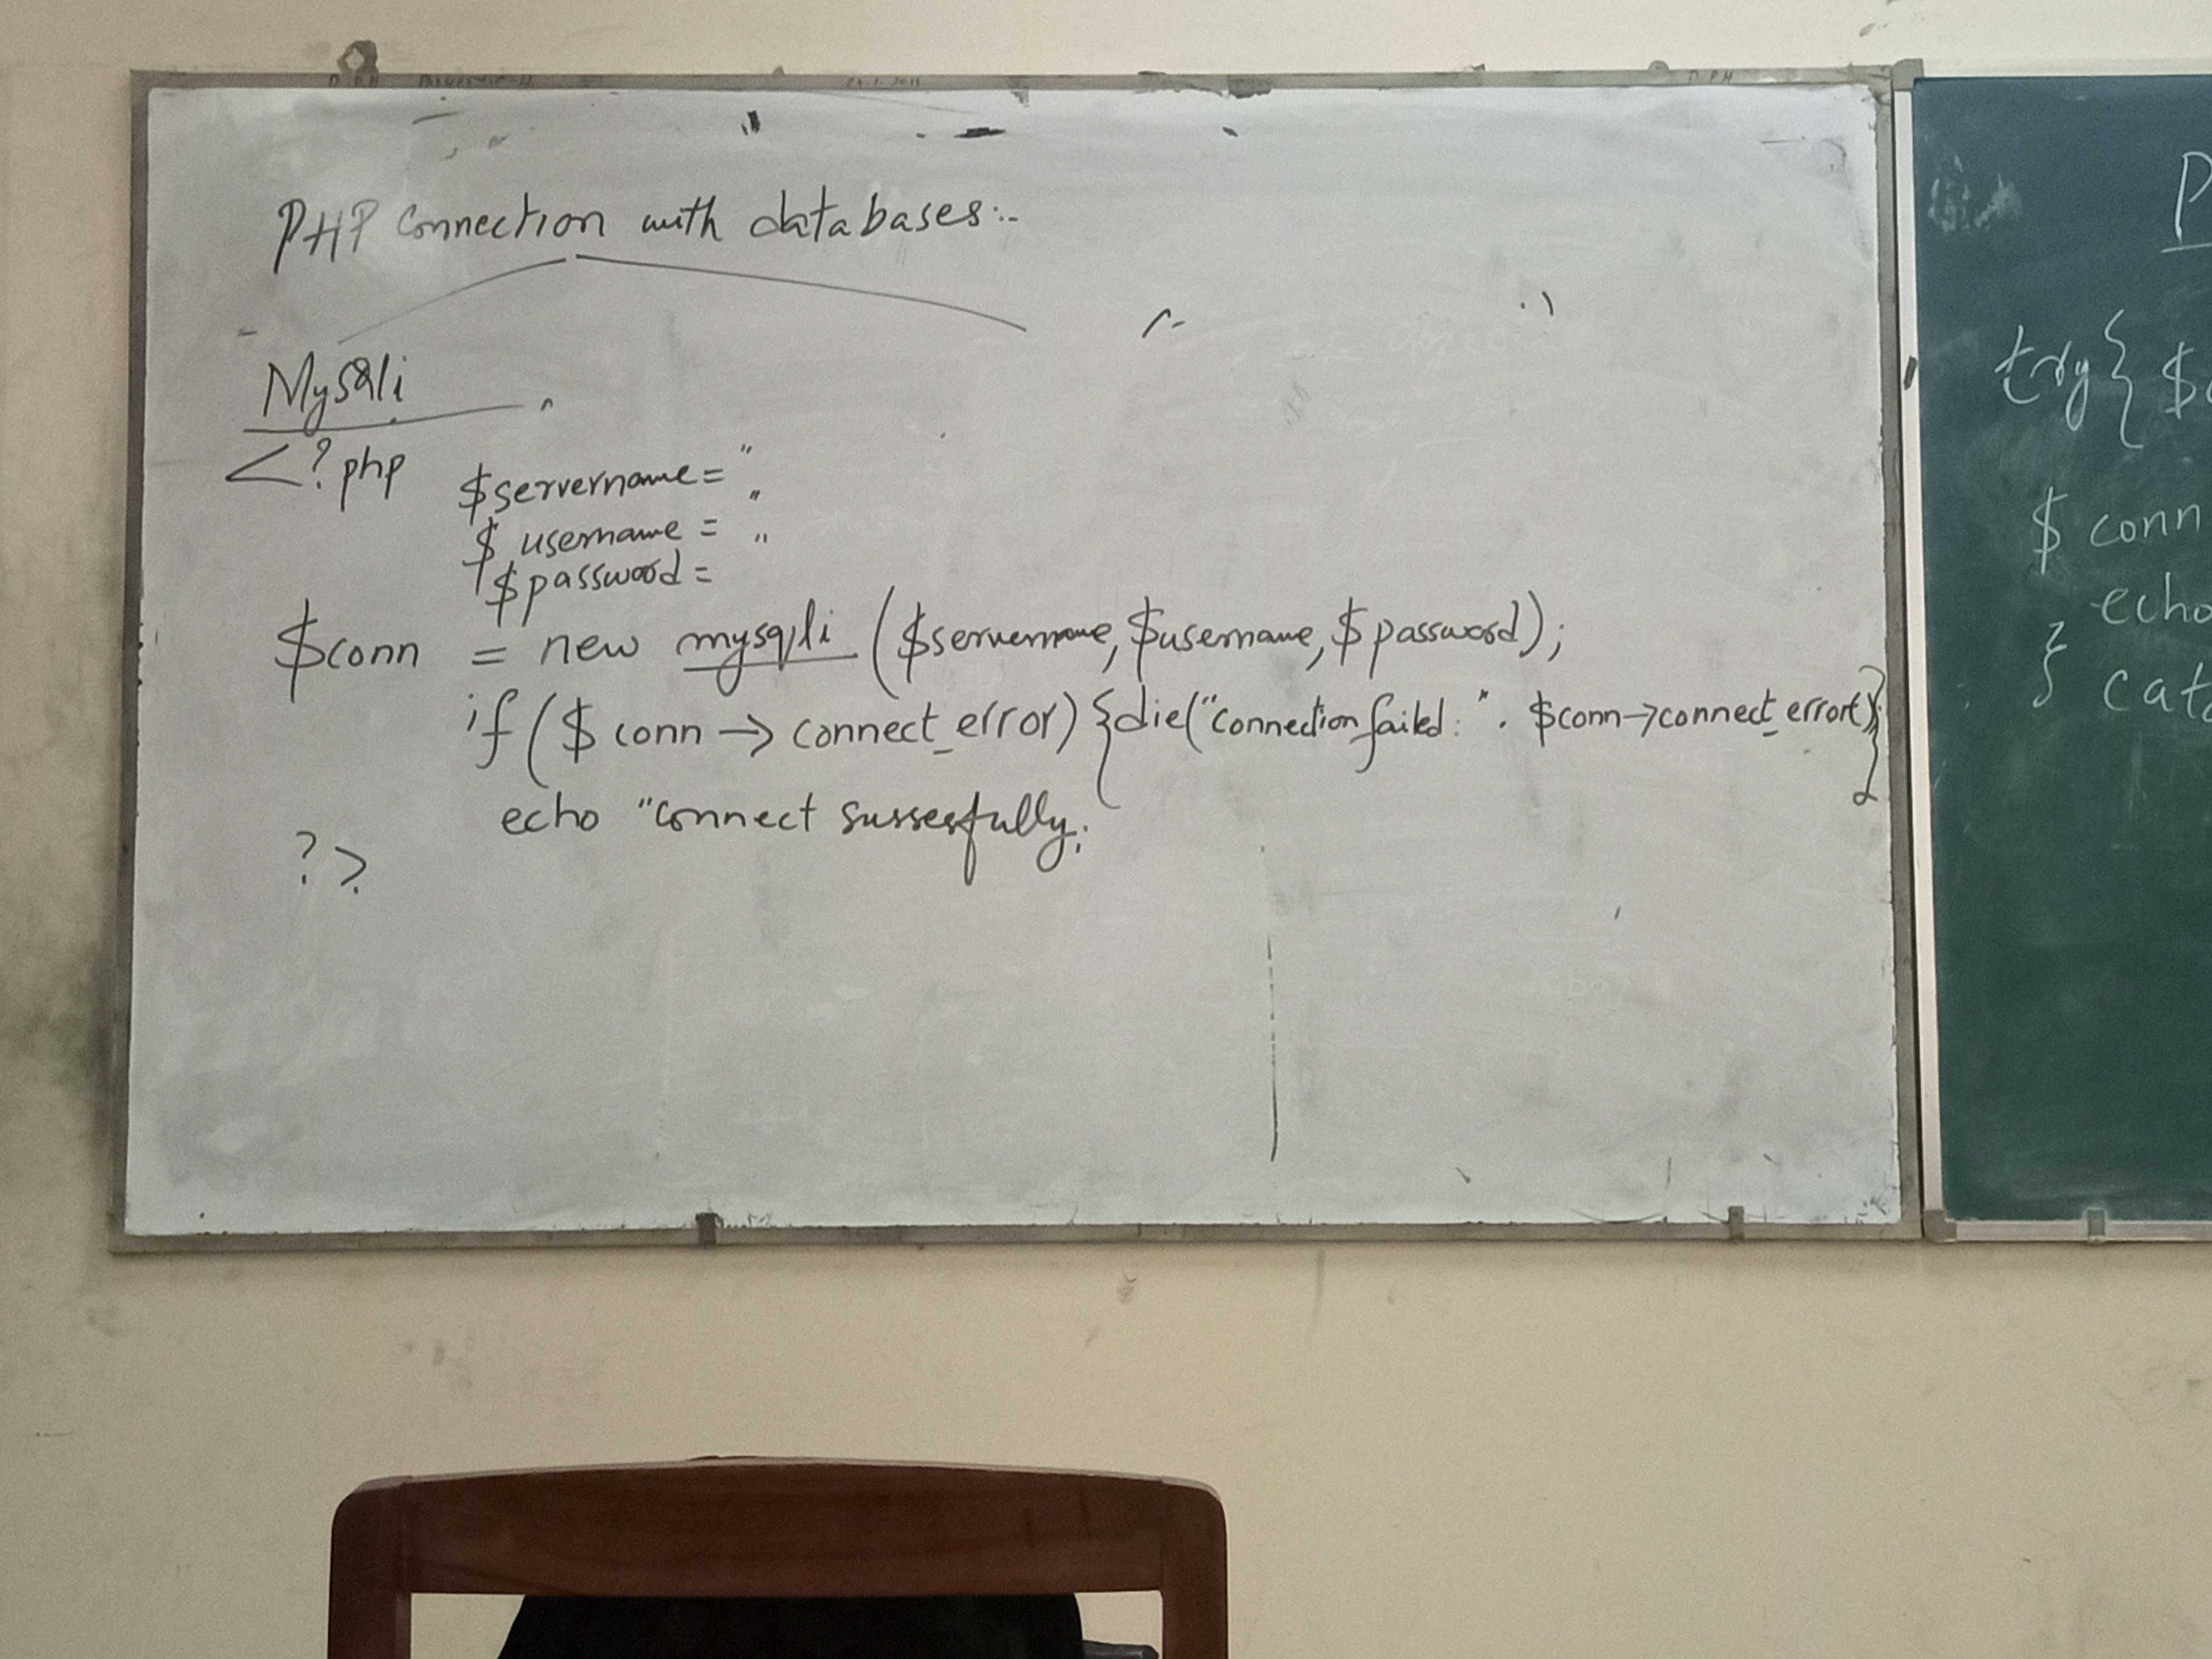 PHP Connection with databases:-
MySQli
<?php
$servername= "
$ username = "
$password= "
$conn = new mysqli ($servername, $username, $password);
if ($ conn → connect_error) {die("connection failed: ". $conn→connect_error);}
echo "connect sussesfully;
?>
P
try{ $
$ conn
echo
}
cat